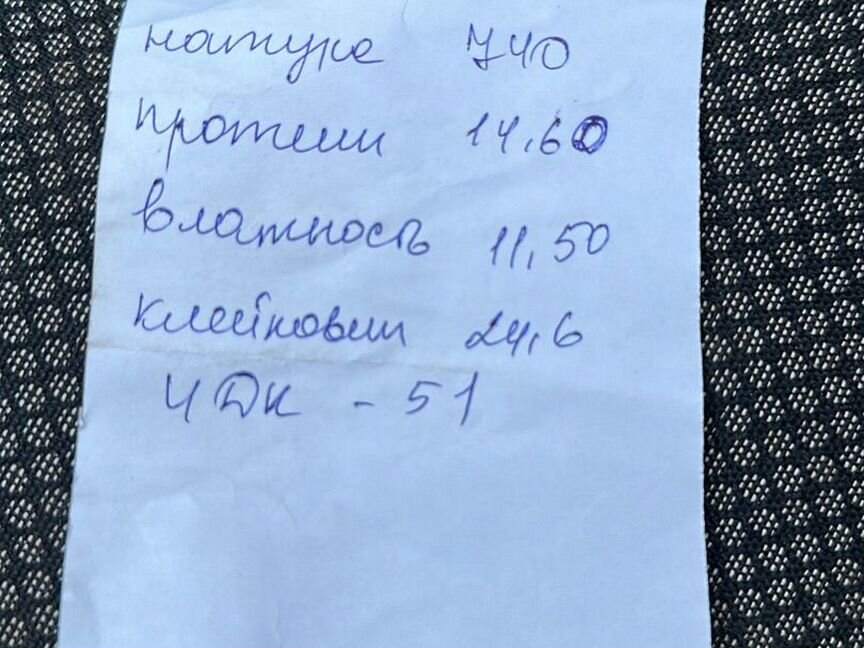 натура 740
протеин 14,60
влажность 11,50
клейковин 24,6
ЧДК - 51